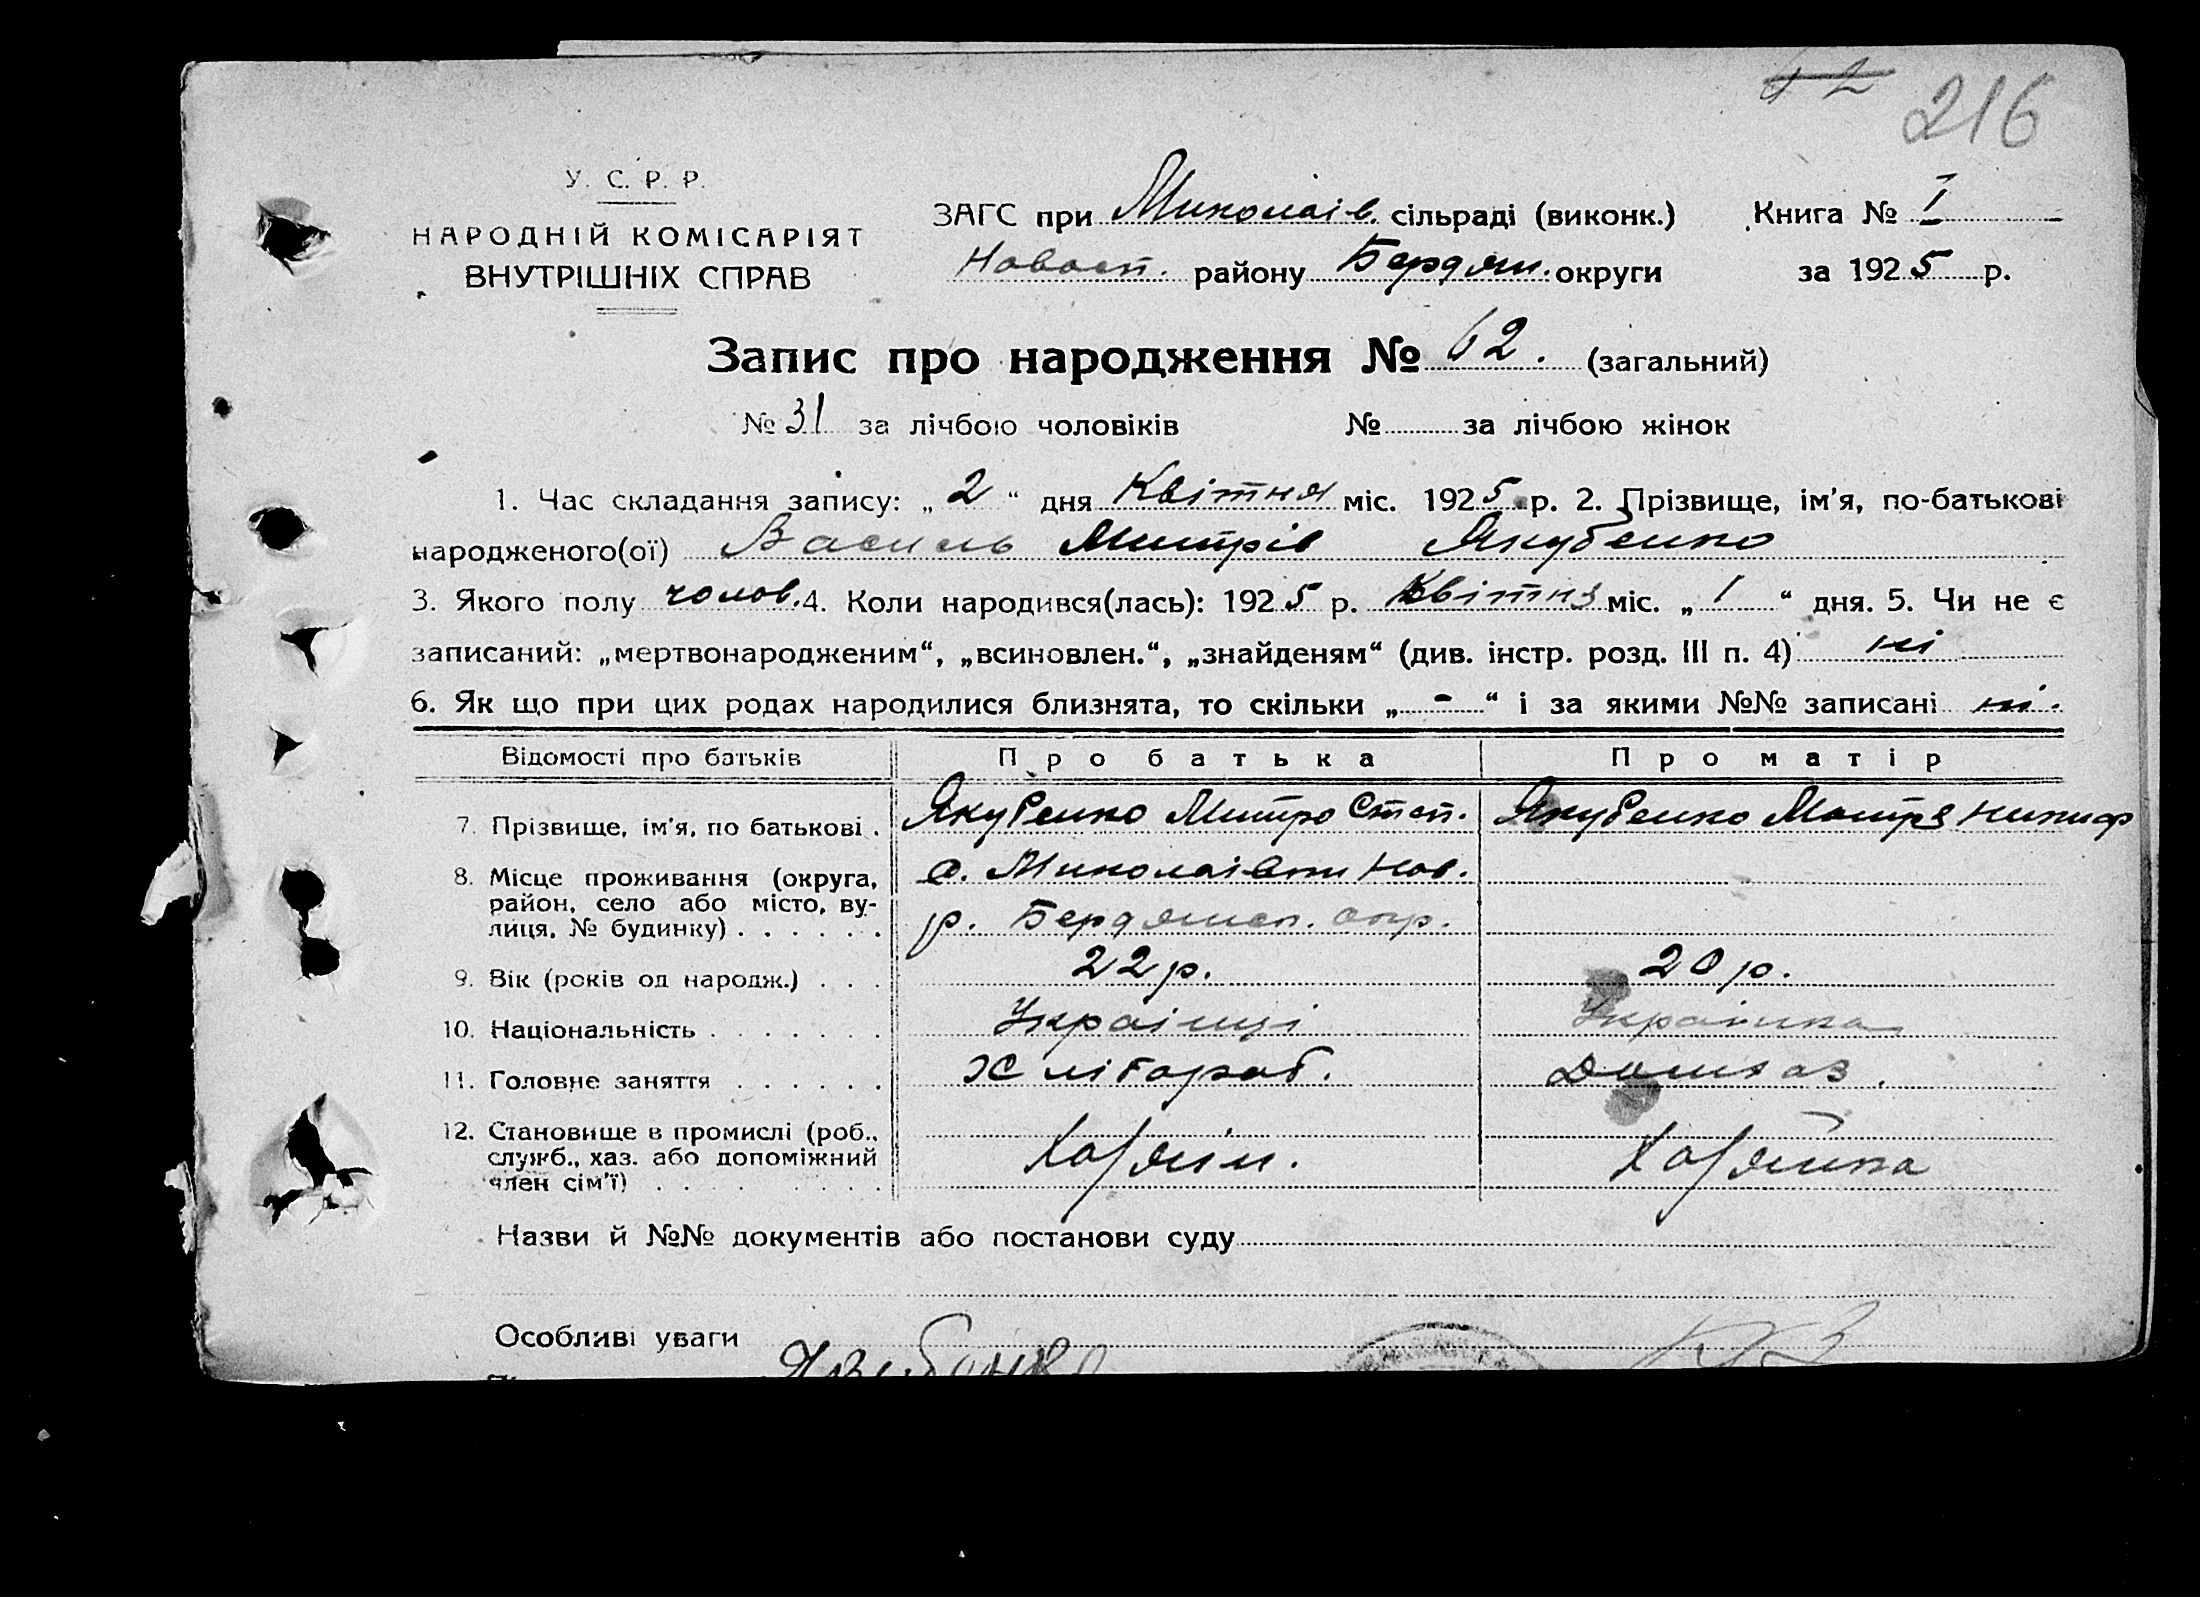 216
У. С. Р. Р.
ЗАГС при Миколаів. сільраді (виконк.) Книга № I
НАРОДНІЙ КОМІСАРІЯТ
ВНУТРІШНІХ СПРАВ
Новосп. району Бердян. округи за 1925 р.
Запис про народження № 62. (загальний)
№ 31 за лічбою чоловіків № за лічбою жінок
1. Час складання запису: „ 2 “ дня Квітня міс. 1925 р. 2. Прізвище, ім'я, по-батькові
народженого(ої) Василь Митрів Якубенко
3. Якого полу чолов. 4. Коли народився(лась): 1925 р. Квітня міс. „ 1 “ дня. 5. Чи не є
записаний: „мертвонародженим“, „всиновлен.“, „знайденям“ (див. інстр. розд. III п. 4) ні
6. Як що при цих родах народилися близнята, то скільки „ - “ і за якими №№ записані ні.
Відомості про батьків Про батька Про матір
7. Прізвище, ім'я, по батькові . Якубенко Митро Степ. Якубенко Мотря Никиф
8. Місце проживання (округа, район, село або місто, вулиця, № будинку) . . . . . . с. Миколаівки Нов.
р. Бердянськ. окр.
9. Вік (років од народж.) . . . 22 р. 20 р.
10. Національність . . . . . . . Украінці Украінка
11. Головне заняття . . . . . . Хлібороб. Домхаз.
12. Становище в промислі (роб., служб., хаз. або допоміжний член сім'ї) . . . . . . . Хазяін. Хазяйка
Назви й №№ документів або постанови суду
Особливі уваги